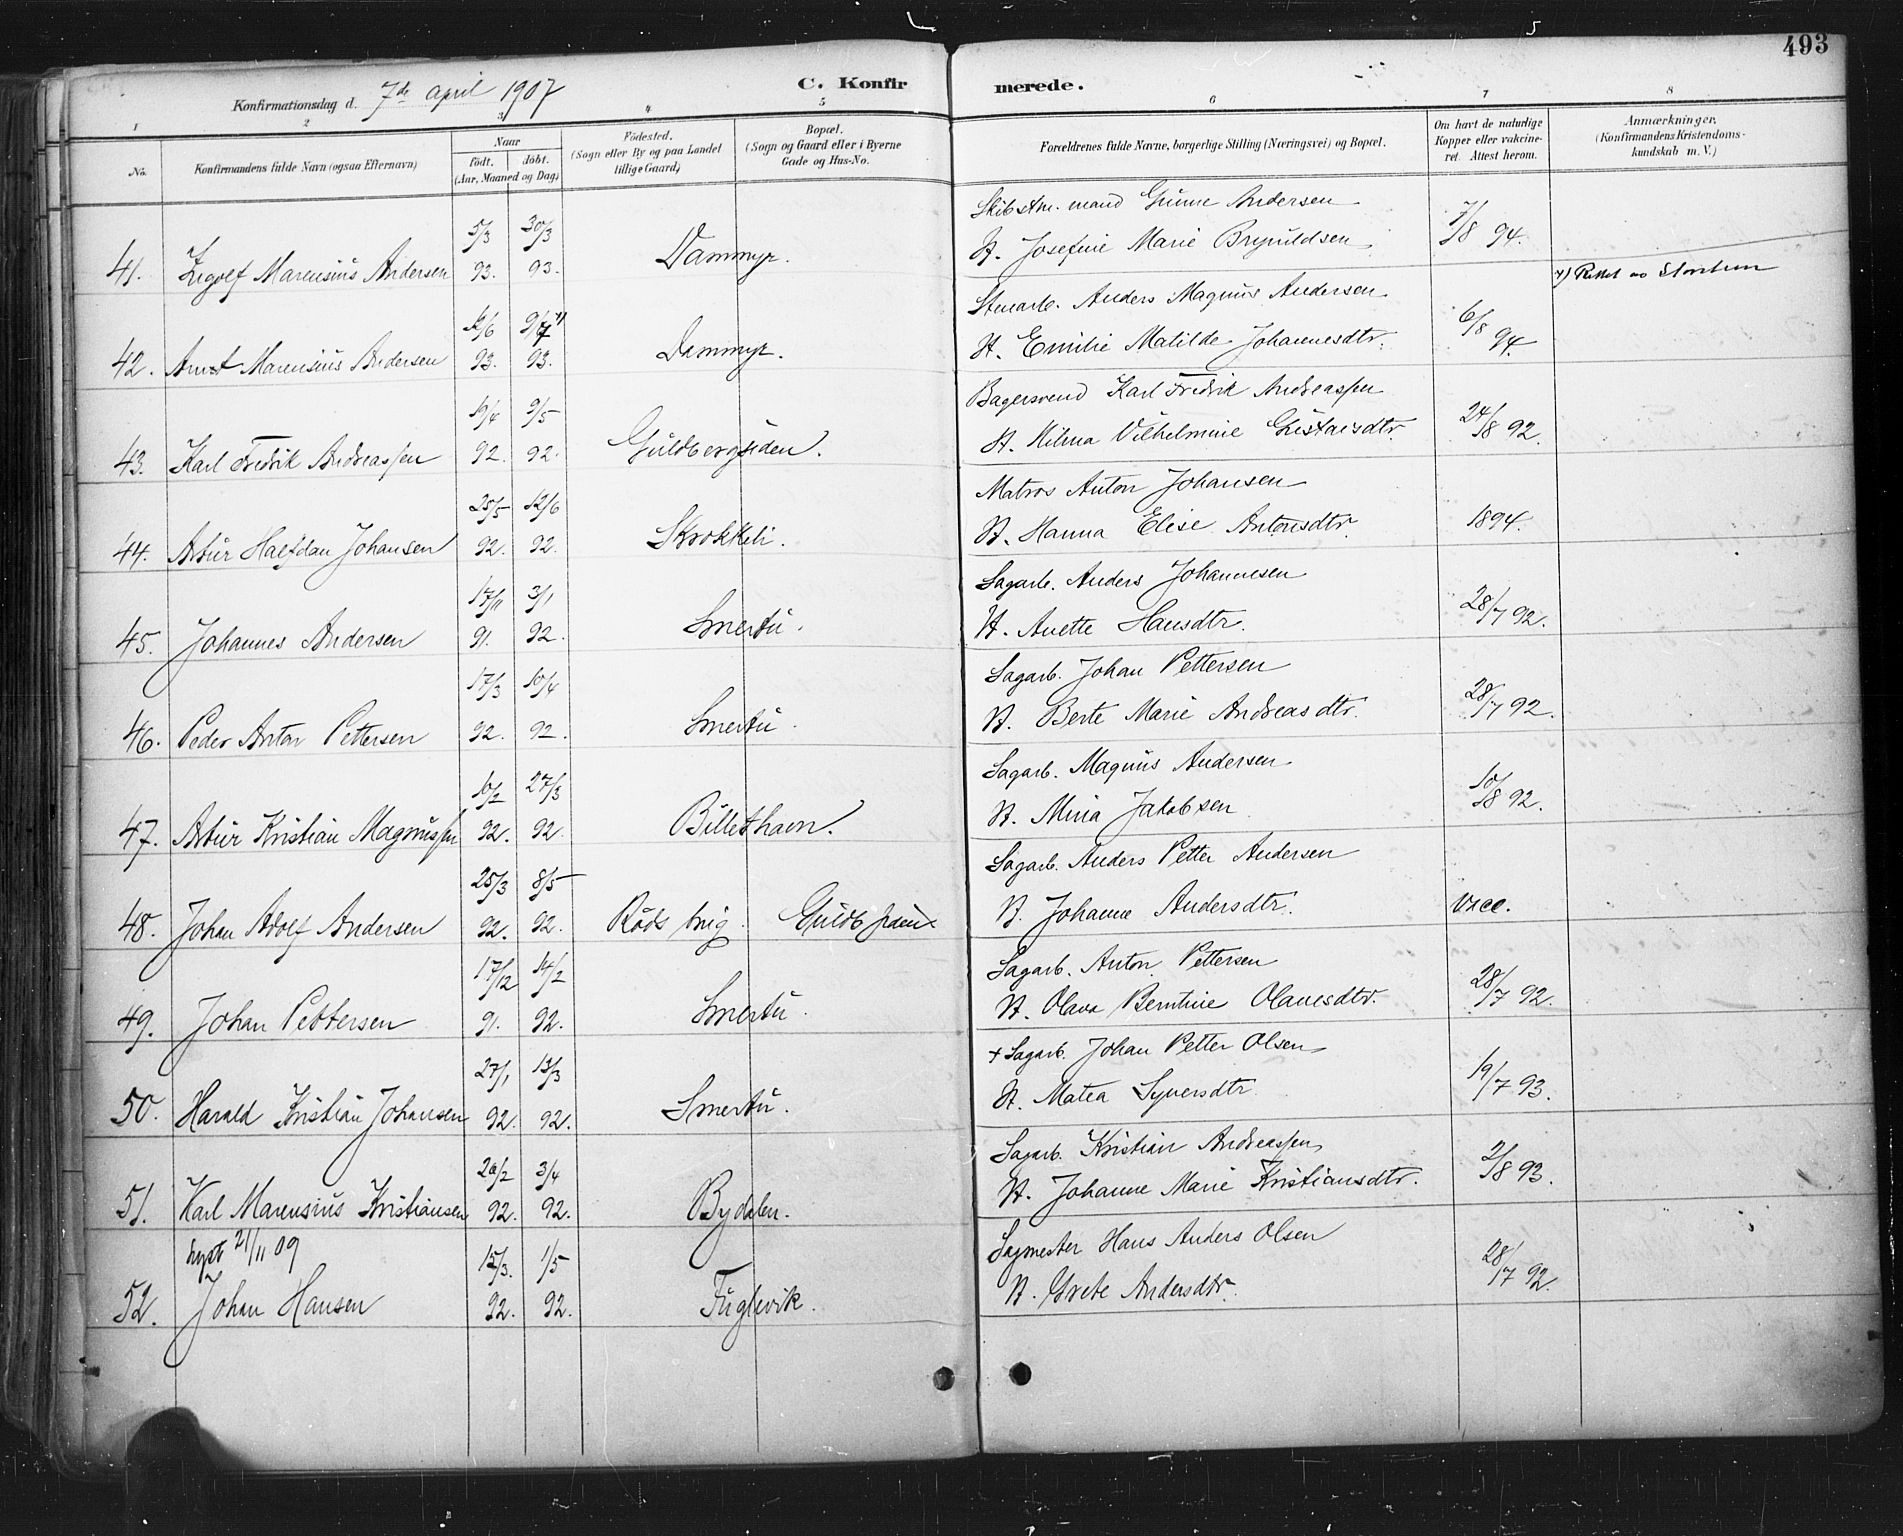 493
C. Konfirmerede.
Konfirmationsdag d. 7de april 1907
1 2 3 4 5 6 7 8
No.
Konfirmandens fulde Navn (ogsaa Efternavn)
Naar
födt. döbt.
(Aar, Maaned og Dag)
Födested.
(Sogn eller By og paa Landet tillige Gaard)
Bopæl.
(Sogn og Gaard eller i Byerne Gade og Hus-No.
Forældrenes fulde Navne, borgerlige Stilling (Næringsvei) og Bopæl.
Om havt de naturlige Kopper eller vakcineret. Attest herom.
Anmærkninger.
(Konfirmandens Kristendomskundskab m. V.)
41. Ingolf Marensius Andersen 5/3 93. 30/3 93. Dammyr. mand Gunne Andersen
H. Josefine Marie Brynildsen 7/8 94.
42. Arnt Marensius Andersen 12/6 93. 9/7 x) 93. Dammyr. Stenarb. Anders Magnus Andersen
H. Emilie Matilde Johannesdtr. 6/8 94.
x) Rettet av
43. Karl Fredrik Andreassen 19/4 92. 9/5 92. Guldbergsiden. Bagersvend Karl Fredrik Andreassen
H. Hilma Vilhelmine Gustavsdtr. 24/8 92.
44. Artur Halfdan Johansen 25/5 92. 12/6 92. Skrokkeli. Matros Anton Johansen
H. Hanna Elise Antonsdtr. 1894.
45. Johannes Andersen 17/11 91. 3/1 92. Smertu. Sagarb. Anders Johannesen
H. Anette Hansdtr. 28/7 92.
46. Peder Anton Pettersen 17/3 92. 10/4 92. Smertu. Sagarb. Johan Pettersen
H. Berte Marie Andreasdtr. 28/7 92.
47. Artur Kristian Magnussen 10/2 92. 27/3 92. Billethavn. Sagarb. Magnus Andersen
H. Mina Jakobsen 10/8 92.
48. Johan Adolf Andersen 25/3 92. 8/5 92. Røds brug. Sagarb. Anders Petter Andersen
H. Johanne Andersdtr. vacc.
49. Johan Pettersen 17/12 91. 14/2 92. Smertu. Sagarb. Anton Pettersen
H. Olava Berntine Olavesdtr. 28/7 92.
50. Harald Kristian Johansen 27/1 92. 13/3 92. Smertu. + Sagarb. Johan Petter Olsen
H. Matea Syversdtr 19/7 93.
51. Karl Marensius Kristiansen 29/2 92. 3/4 92. Bydalen. Sagarb. Kristian Andreassen
H. Johanne Marie Kristiansdtr. 2/8 93.
lyst 21/11 09
52. Johan Hansen 15/3. 92. 1/5 92. Fuglevik. Sagmester Hans Anders Olsen
H. Grete Andersdtr. 28/7 92.